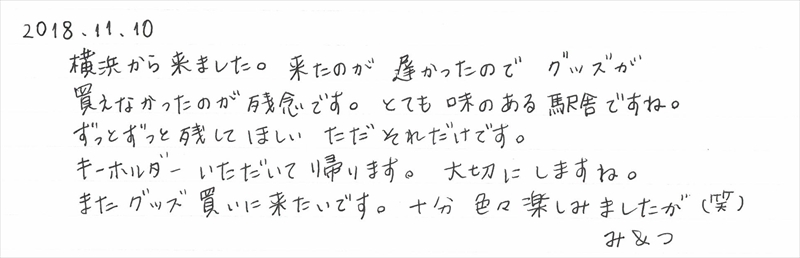 2018.11.10
横浜から来ました。来たのが遅かったので グッズが
買えなかったのが残念です。とても味のある駅舎ですね。
ずっとずっと残してほしい ただそれだけです。
キーホルダーいただいて帰ります。大切にしますね。
またグッズ買いに来たいです。十分色々楽しみましたが(笑)
み&つ